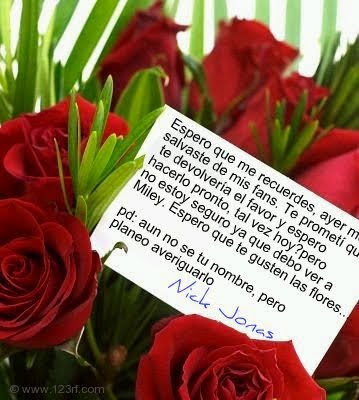 Espero que me recuerdes, ayer me
salvaste de mis fans. Te prometí que
te devolvería el favor y espero
hacerlo pronto, tal vez hoy?pero
no estoy seguro ya que debo ver a
Miley. Espero que te gusten las flores..
pd: aun no se tu nombre, pero
planeo averiguarlo
Nick Jonas
© www.123rf.com